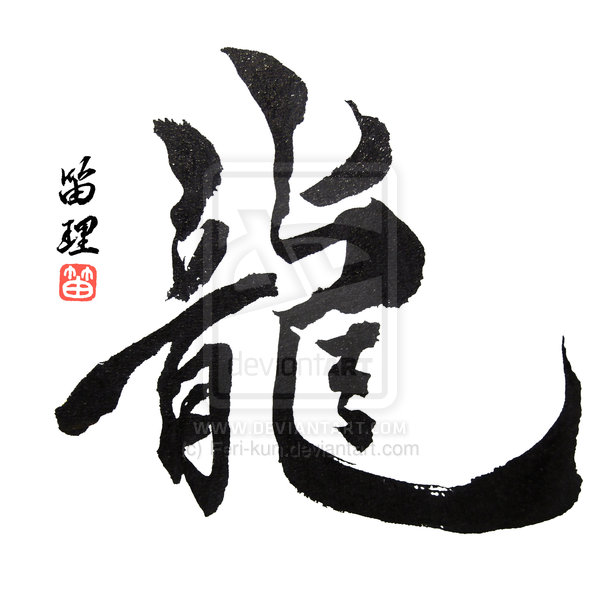 龍
笛理
笛
deviantART
WWW.DEVIANTART.COM
(c) Feri-kun.deviantart.com